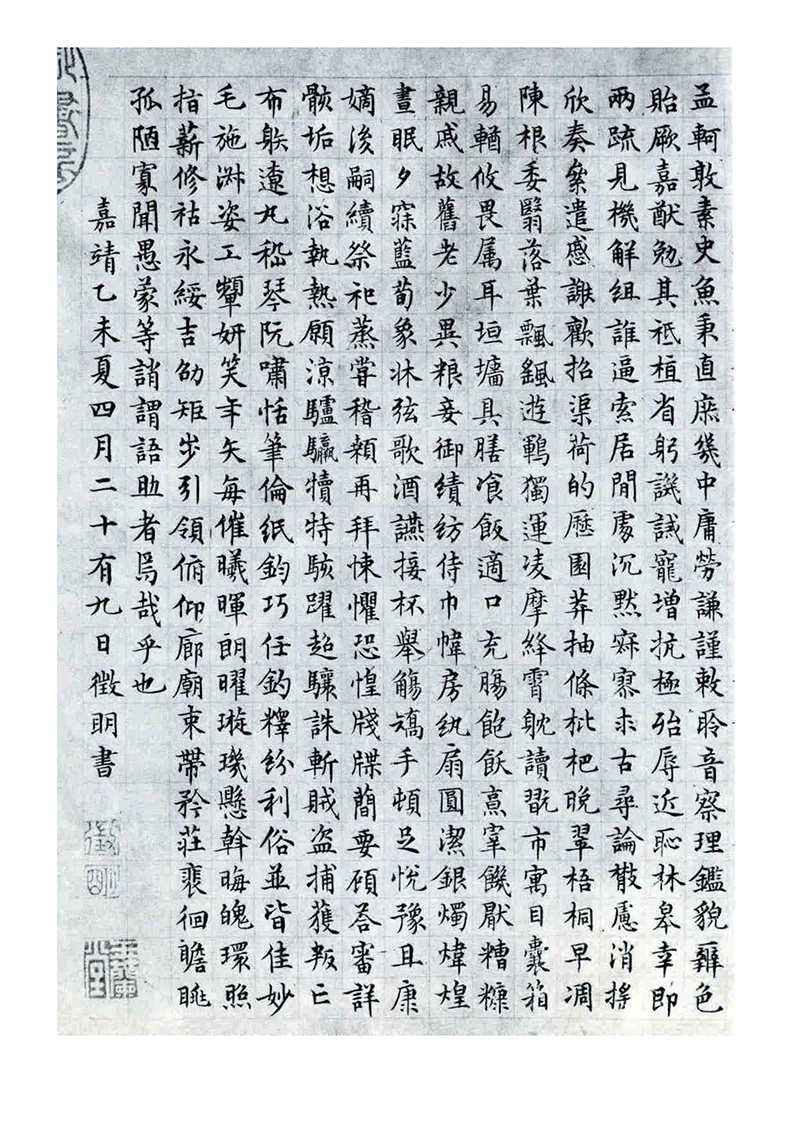 孟軻敦素史魚秉直庶幾中庸勞謙謹敕聆音察理鑑貌辯色
貽厥嘉猷勉其祗植省躬譏誡寵增抗極殆辱近恥林皋幸即
兩疏見機解組誰逼索居閒處沉默寂寥求古尋論散慮消搖
欣奏纍遣慼謝歡招渠荷的歷園莽抽條枇杷晚翠梧桐早凋
陳根委翳落葉飄颻遊鵾獨運凌摩絳霄耽讀翫市寓目囊箱
易輶攸畏属耳垣墻具膳飡飯適口充腸飽飫烹宰饑厭糟糠
親戚故舊老少異粮妾御績紡侍巾帷房紈扇圓潔銀燭煒煌
晝眠夕寐藍荀象牀弦歌酒讌接杯舉觴矯手頓足悅豫且康
嫡後嗣續祭祀蒸嘗稽顙再拜悚懼恐惶牋牒簡要顧荅審詳
骸垢想浴執熱願涼驢驘犢特駭躍超驤誅斬賊盜捕獲叛亡
布躲遼丸嵇琴阮嘯恬筆倫紙鈞巧任釣釋紛利俗並皆佳妙
毛施淑姿工顰妍笑年矢每催曦暉朗曜璇璣懸斡晦魄環照
指薪修祜永綏吉劭矩步引領俯仰廊廟束帶矜莊裴徊瞻眺
孤陋寡聞愚蒙等誚謂語助者焉哉乎也
嘉靖乙未夏四月二十有九日徵明書
徵明
玉蘭堂